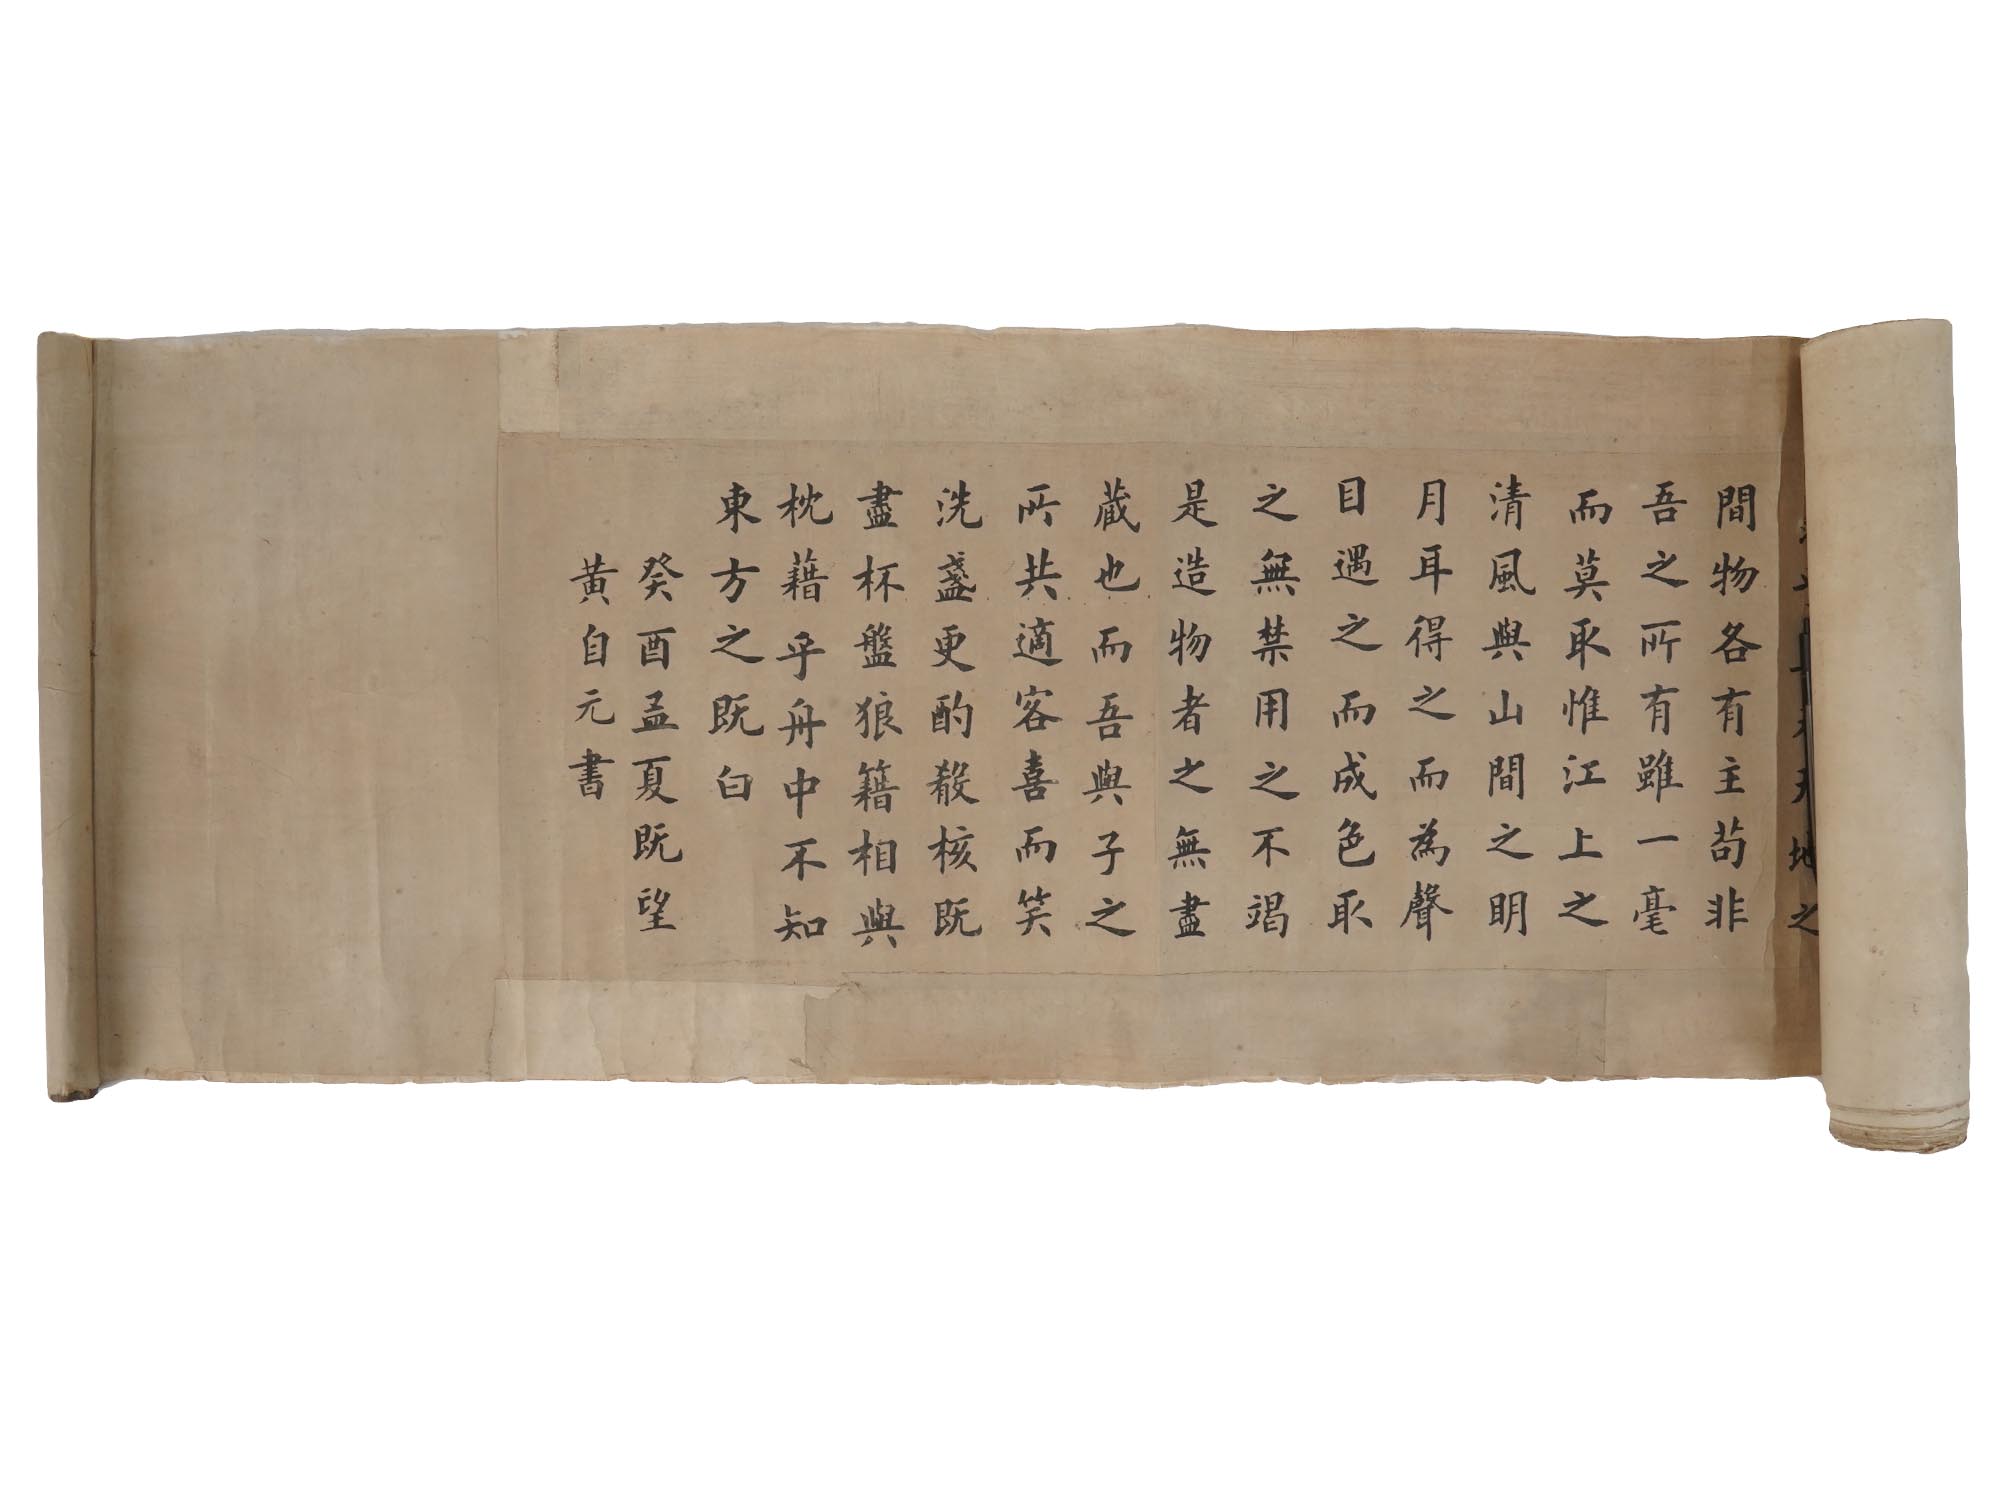 天地之
間物各有主苟非
吾之所有雖一毫
而莫取惟江上之
清風與山間之明
月耳得之而為聲
目遇之而成色取
之無禁用之不竭
是造物者之無盡
蔵也而吾與子之
所共適客喜而笑
洗盞更酌殽核既
盡杯盤狼籍相與
枕藉乎舟中不知
東方之既白
癸酉孟夏既望
黄自元書